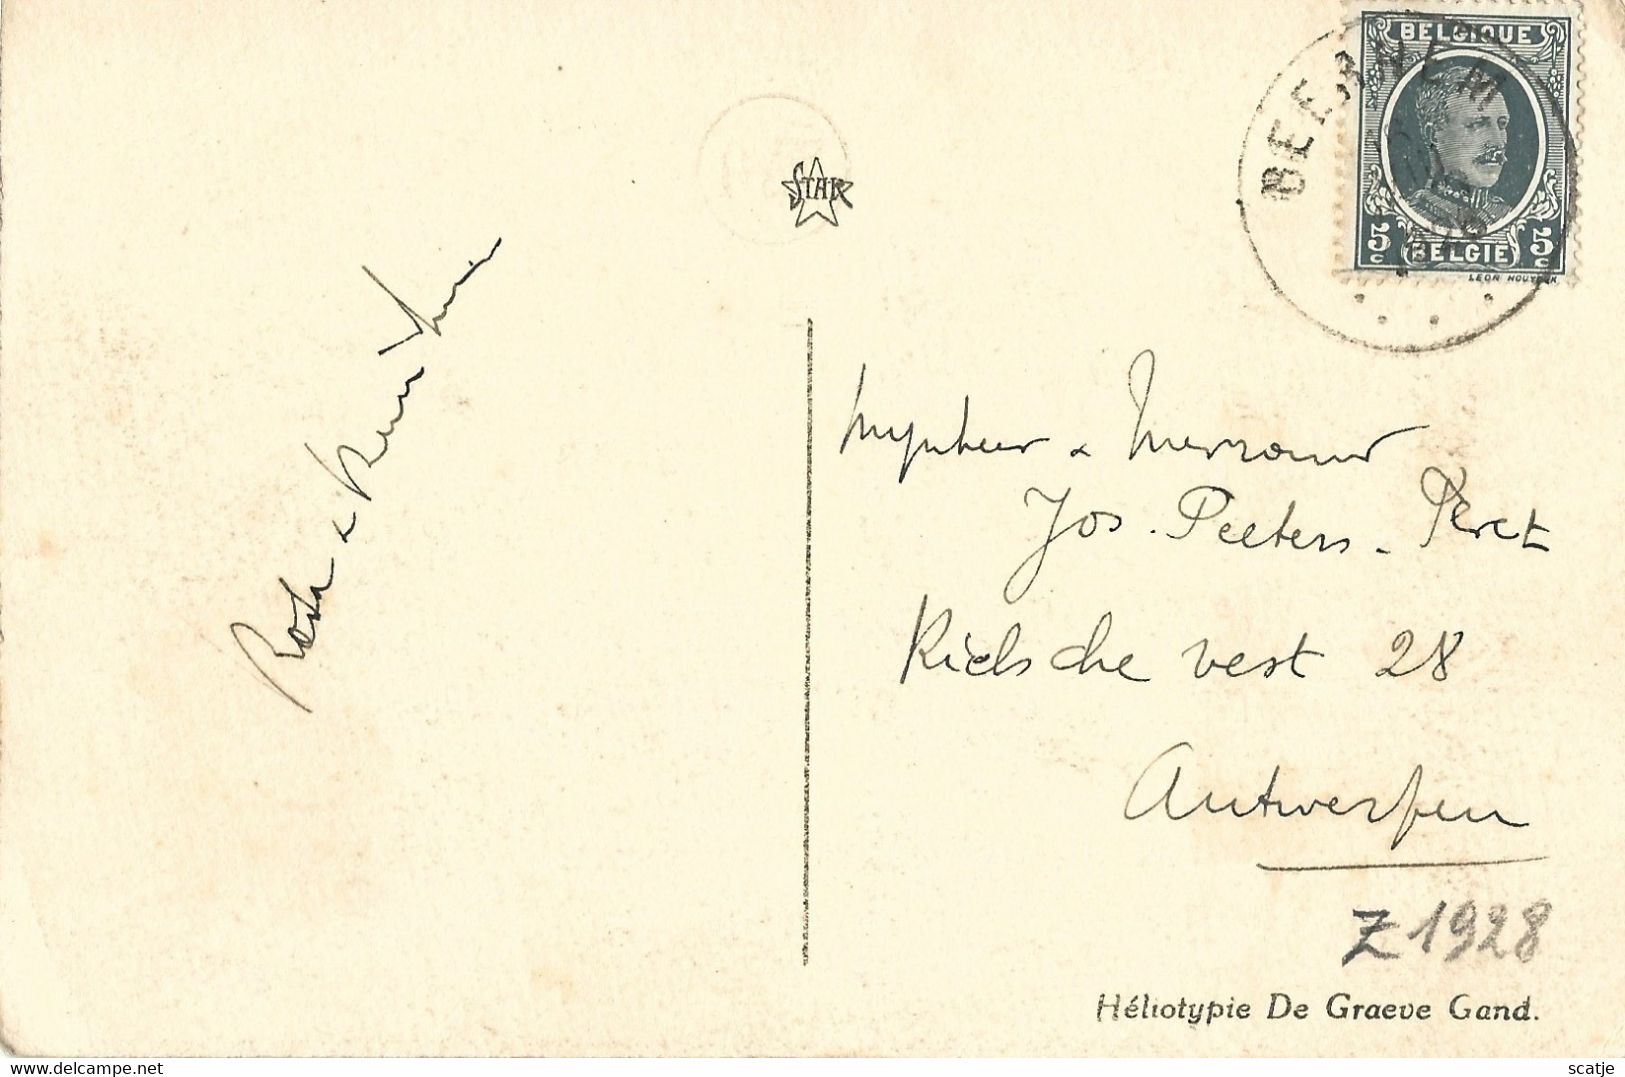 BELGIQUE
BEERNEM
5c BELGIE 5c
STAR
Rosa &
Mynheer & Mevrouw
Jos. Peeters - Peret
Kielsche vest 28
Antwerpen
Z 1928
Héliotypie De Graeve Gand.
https://www.delcampe.net
scatje